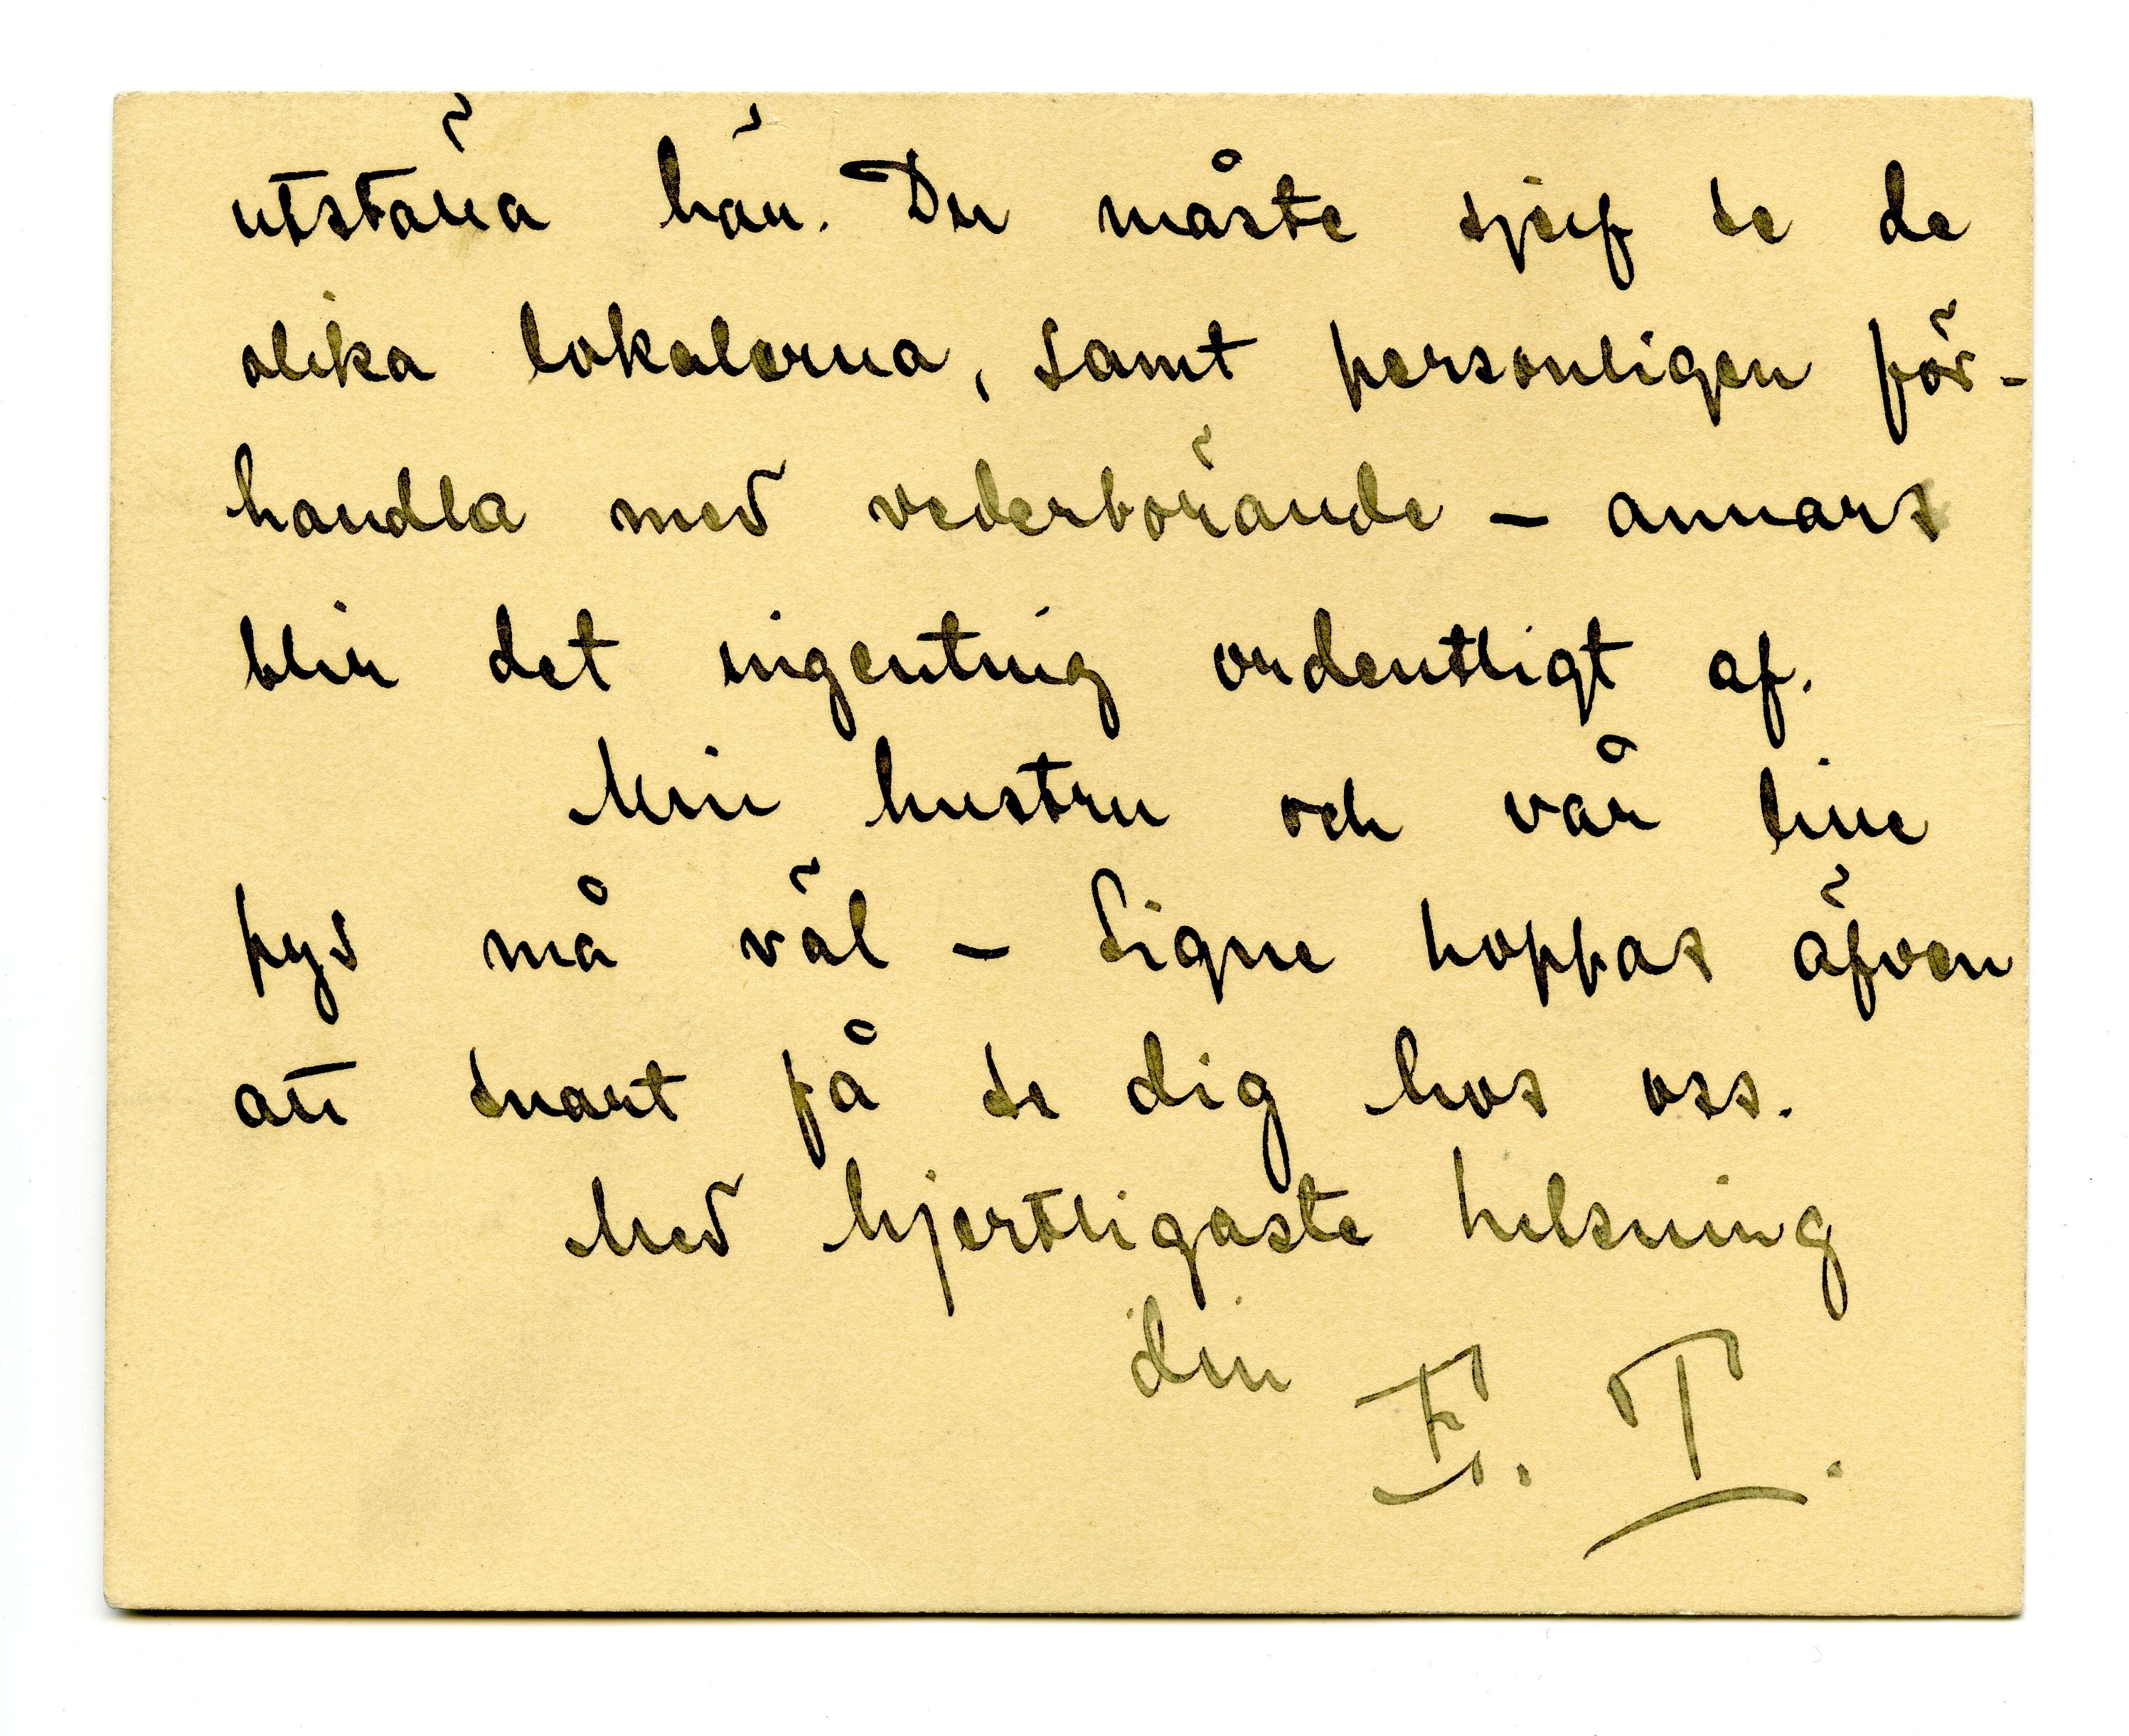 utställa här. Du måste sjelf se de
olika lokalerna, samt personligen för-
handla med vederbörande – annars
blir det ingenting ordentligt af.
Min hustru och vår line
pys må väl – Signe hoppas äfven
att snart få se dig hos oss.
Med hjertligaste helsning
din E. T.